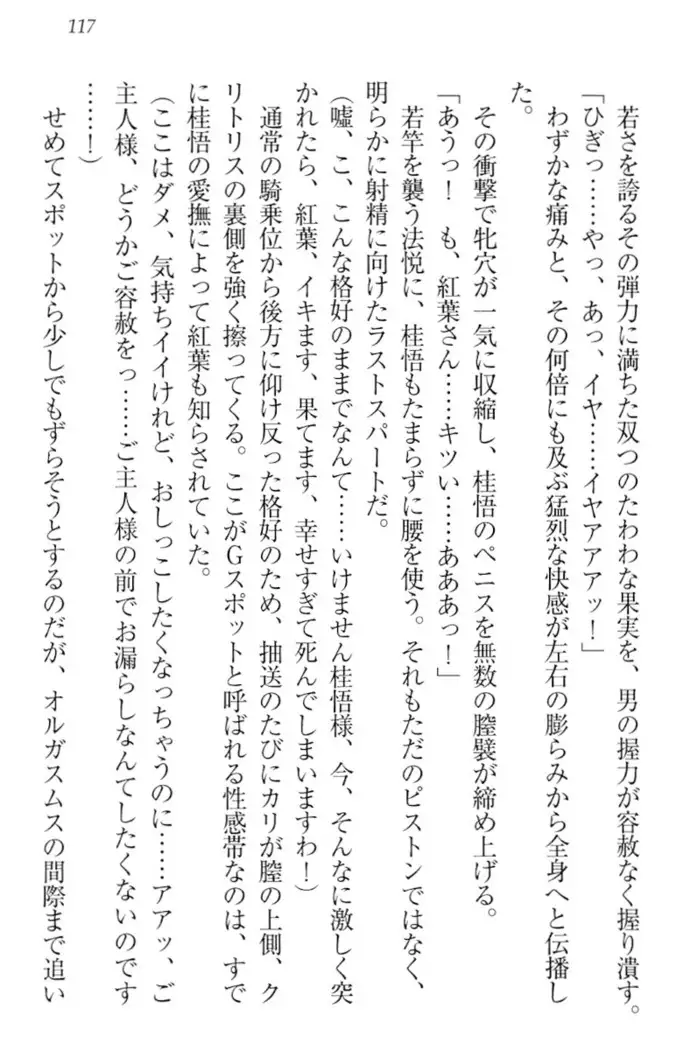 117
若さを誇るその弾力に満ちた双つのたわわな果実を、男の握力が容赦なく握り潰す。
「ひぎっ……やっ、あっ、イヤ……イヤアアアッ！」
わずかな痛みと、その何倍にも及ぶ猛烈な快感が左右の膨らみから全身へと伝播し
た。
その衝撃で牝穴が一気に収縮し、桂悟のペニスを無数の膣襞が締め上げる。
「あうっ！　も、紅葉さん……キツい……あああっ！」
若竿を襲う法悦に、桂悟もたまらずに腰を使う。それもただのピストンではなく、
明らかに射精に向けたラストスパートだ。
（嘘、こ、こんな格好のままでなんて……いけません桂悟様、今、そんなに激しく突
かれたら、紅葉、イキます、果てます、幸せすぎて死んでしまいますわ！）
通常の騎乗位から後方に仰け反った格好のため、抽送のたびにカリが膣の上側、ク
リトリスの裏側を強く擦ってくる。ここがＧスポットと呼ばれる性感帯なのは、すで
に桂悟の愛撫によって紅葉も知らされていた。
（ここはダメ、気持ちイイけれど、おしっこしたくなっちゃうのに……アアッ、ご
主人様、どうかご容赦をっ……ご主人様の前でお漏らしなんてしたくないのです
……！）
せめてスポットから少しでもずらそうとするのだが、オルガスムスの間際まで追い